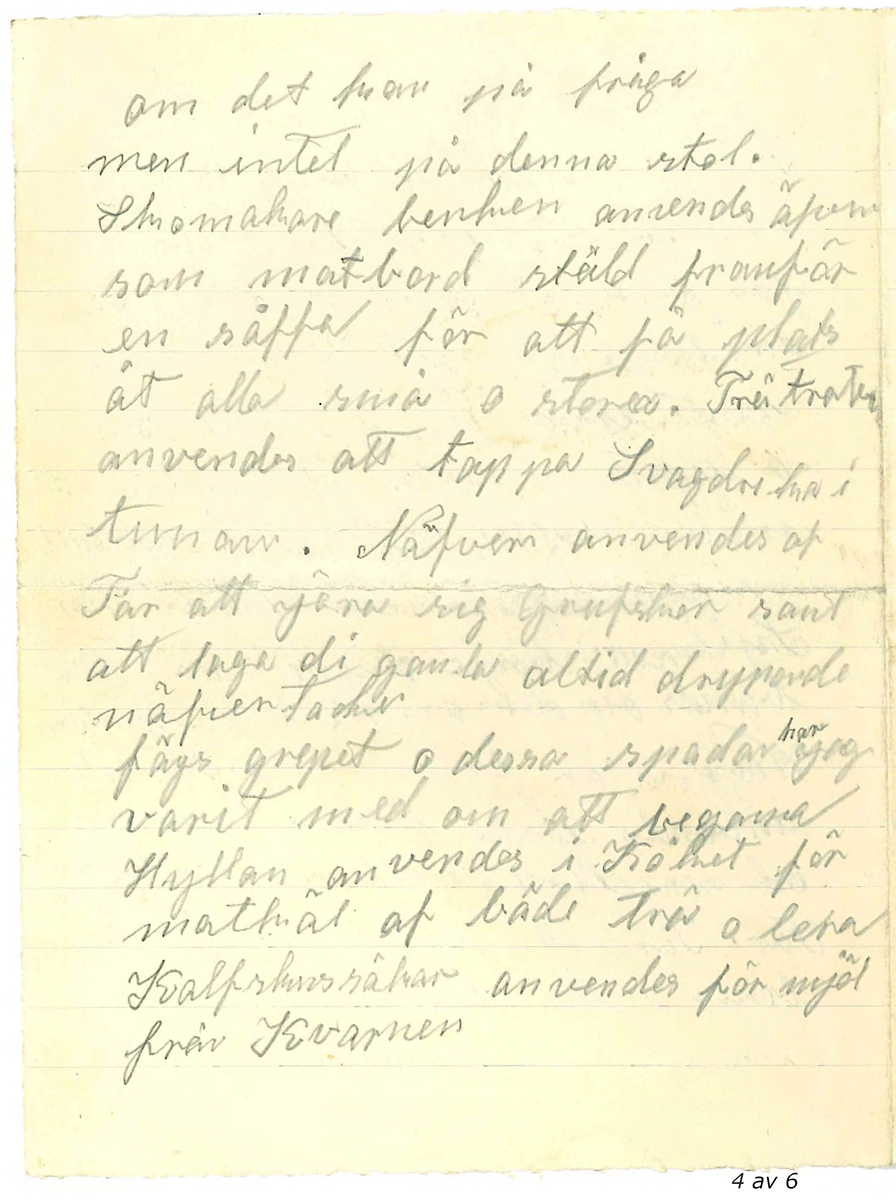 om det kan på fråga
men intet på denna stol.
Skomakare benken anvendes äfven
som matbord stäld framför
en såffa för att få plats
åt alla små o stora. Trätratten
anvendes att tappa Svagdricka i
tunnan. Näfvern anvendes af
Far att göra sig Grufskor samt
att laga di gamla altid drypande
näfvertaken
fägs grepet o dessa spadar har jag
varit med om att begagna
Hyllan anvendes i Köket för
mathäl af både trä o lera
Kalfskinssäkar anvendes för mjöl
från Kvarnen
4 av 6